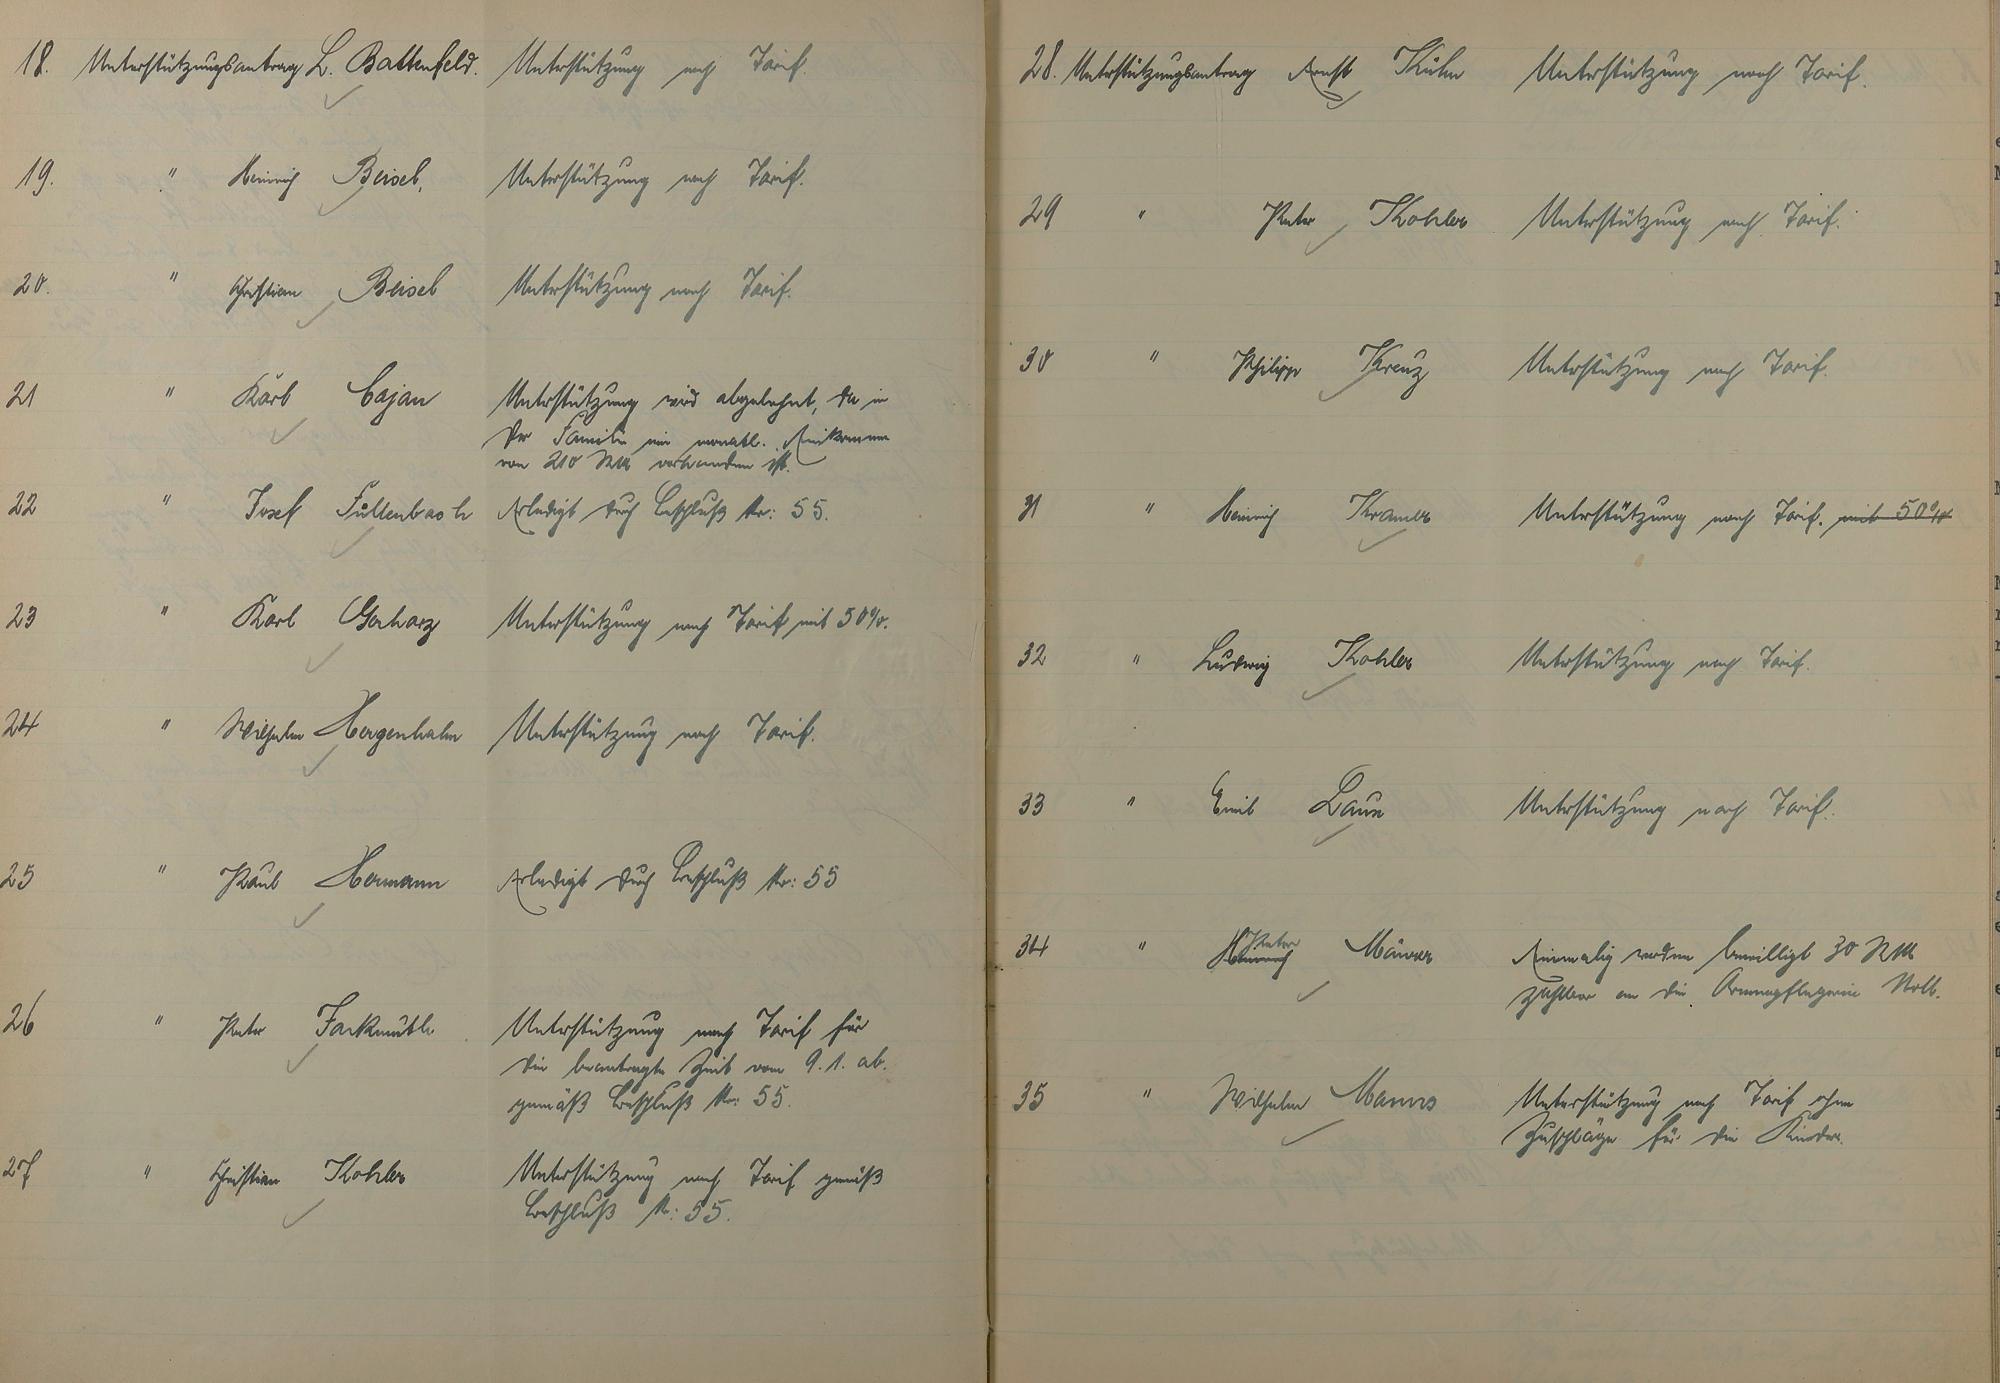 18. Unterstützungsantrag L. Battenfeld. Unterstützung nach Tarif.
19. " Heinrich Beisel, Unterstützung nach Tarif.
20. " Christian Beisel Unterstützung nach Tarif.
21 " Karl Cajan Unterstützung wird abgelehnt, da in
der Familie ein monatl. Einkommen
von 210 RM vorhanden ist.
22 " Josef Fultenbach Erledigt durch Beschluß Nr: 55.
23 " Karl Gerharz Unterstützung nach Tarif mit 50%.
24 " Wilhelm Hergenhahn Unterstützung nach Tarif.
25 " Paul Hermann Erledigt durch Beschluß Nr: 55
26 " Peter Unterstützung nach Tarif für
die beantragte Zeit vom 9.1. ab.
gemäß Beschluß Nr: 55.
27 " Christian Kohler Unterstützung nach Tarif gemäß
Beschluß Nr: 55.
28. Unterstützungsantrag Ernst Kühn Unterstützung nach Tarif.
29 " Peter Kohler Unterstützung nach Tarif.
30 " Philipp Kreuz Unterstützung nach Tarif.
31 " Heinrich Kramer Unterstützung nach Tarif. mit 50%
32 " Ludwig Kohler Unterstützung nach Tarif.
33 " Emil Laux Unterstützung nach Tarif.
34 " Heinrich Peter Maurer Einmalig werden bewilligt 30 RM
zahlbar an die Armenpflegerin
35 " Wilhelm Manns Unterstützung nach Tarif ohne
Zuschläge für die Kinder.